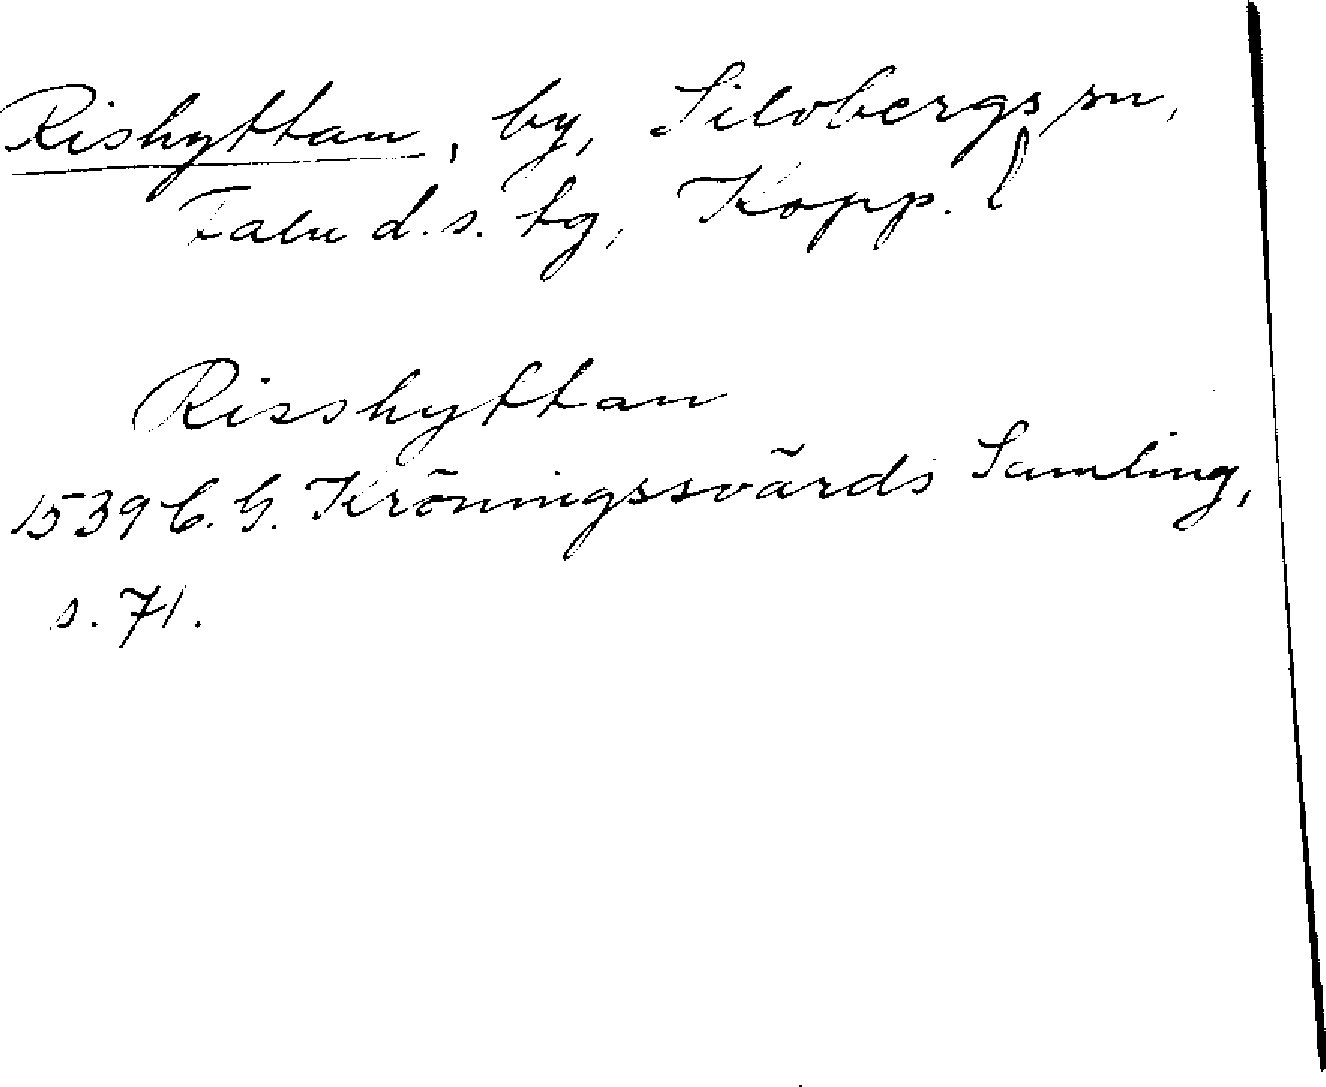 Rishyttan, by, Silvbergs sn,
Falu d.s. tg, Kopp. l
Risshyttan
1539 C. G. Kröningssvärds Samling,
s. 71.